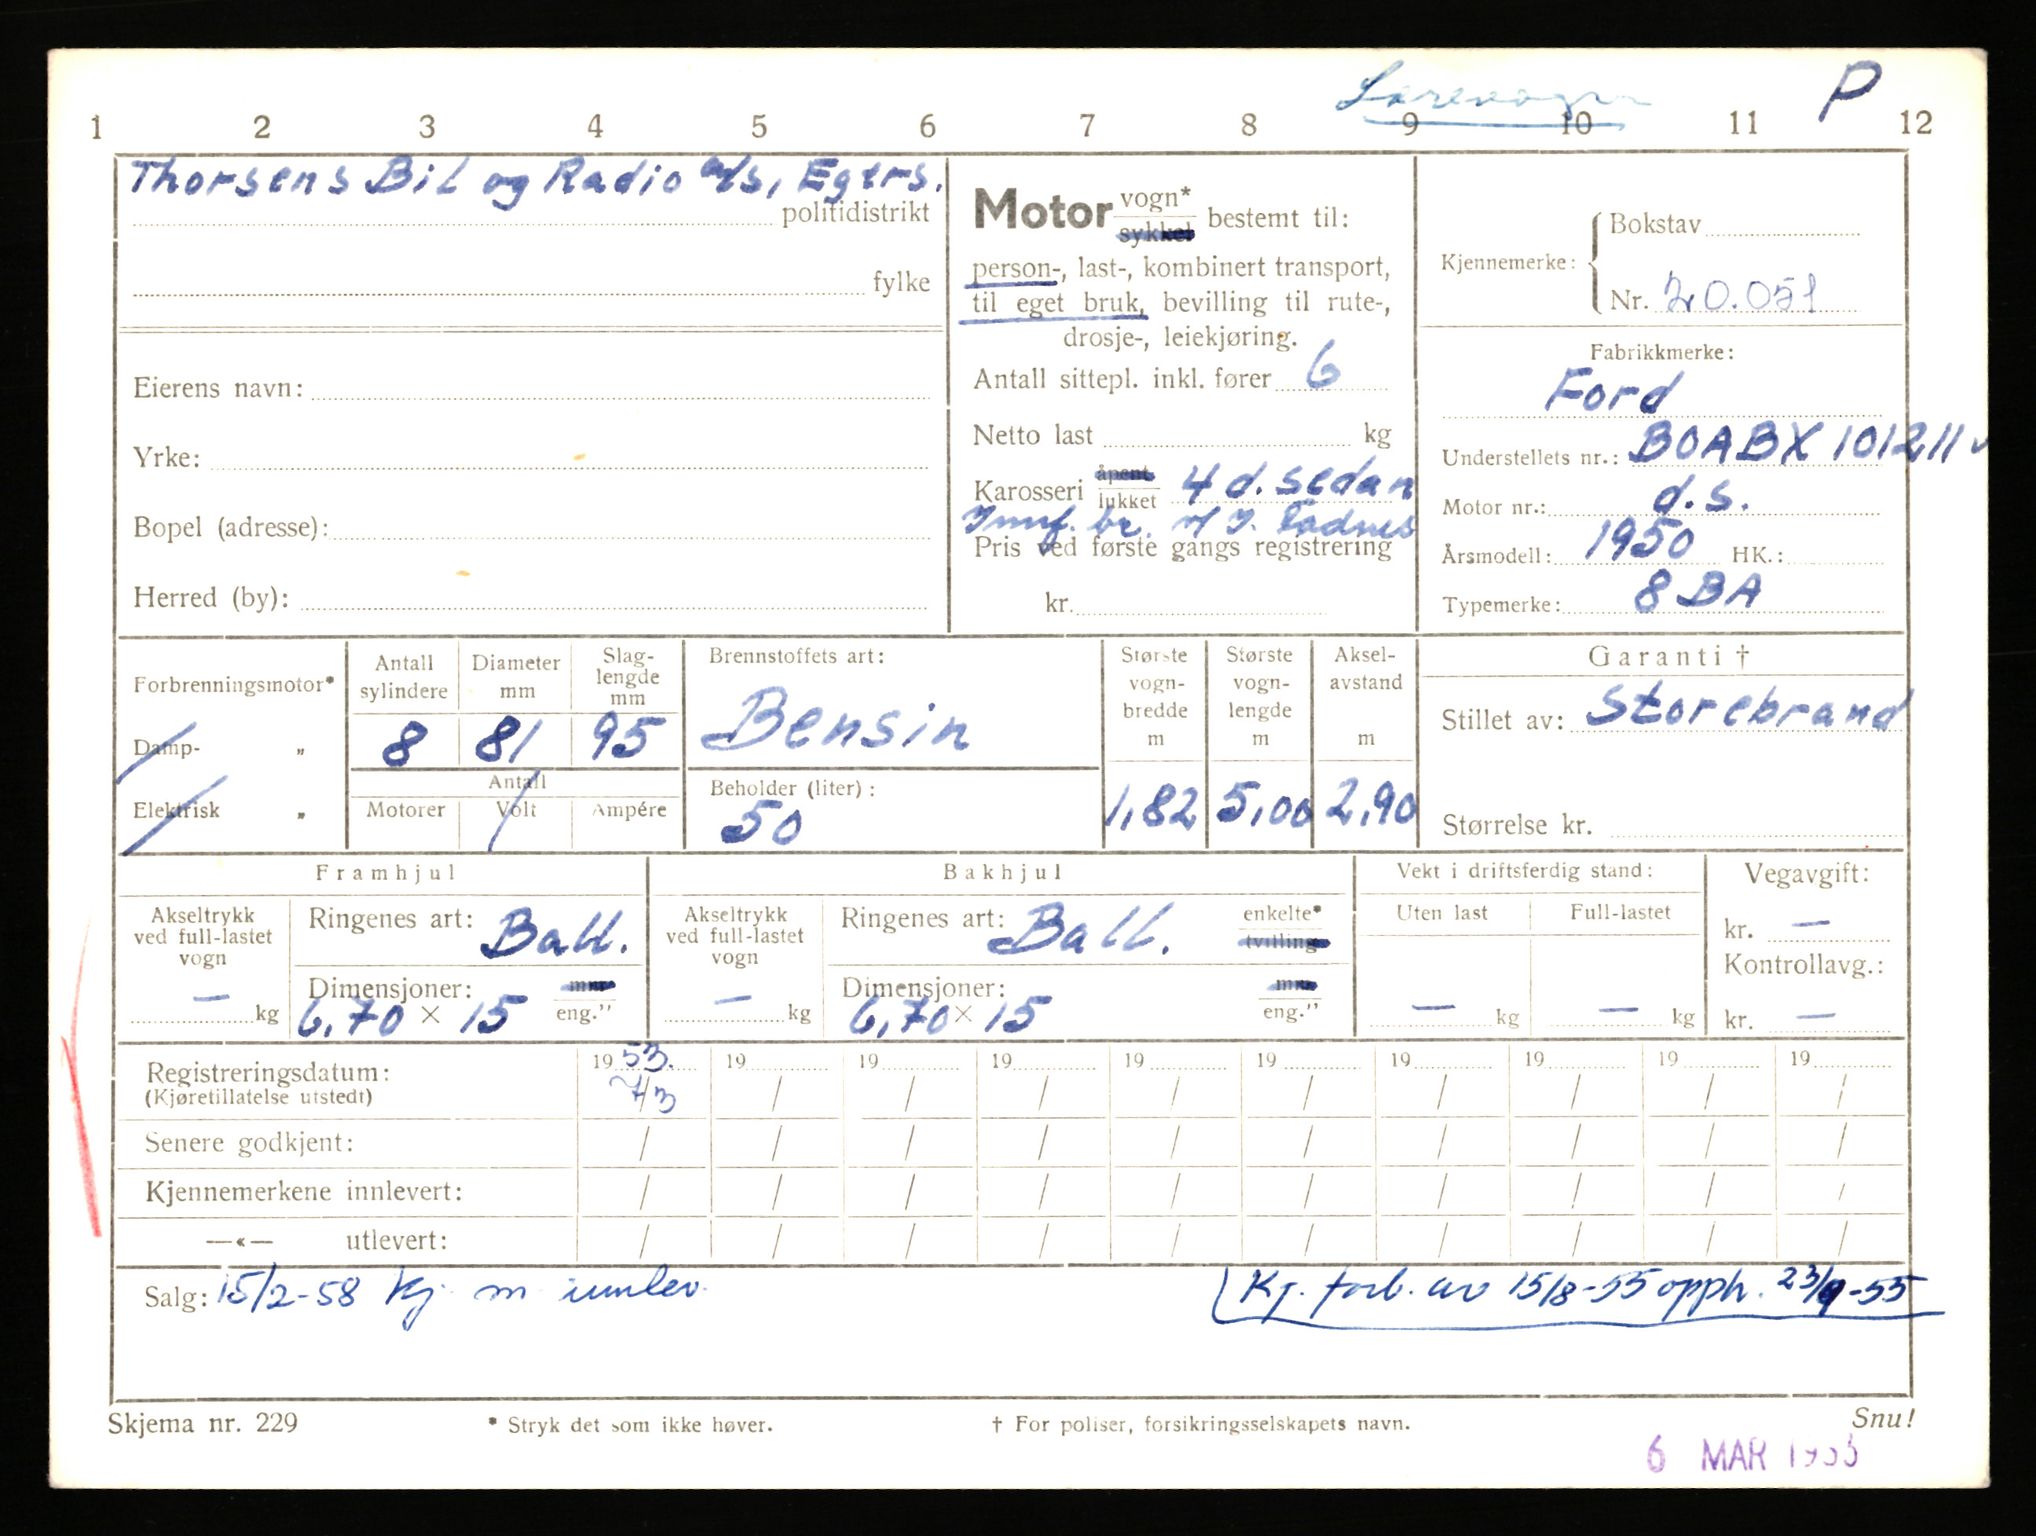 Lærevogn P
1 2 3 4 5 6 7 8 9 10 11 12
Thorsens Bil og Radio a/s, Egers.
politidistrikt
fylke
Eierens navn:
Yrke:
Bopel (adresse):
Herred (by):
Motor vogn* sykkel bestemt til:
person-, last-, kombinert transport,
til eget bruk, bevilling til rute-,
drosje-, leiekjøring.
Antall sittepl. inkl. fører 6
Netto last kg
Karosseri åpent lukket 4 d. sedan
br.
Pris ved første gangs registrering
kr.
Kjennemerke: Bokstav
Nr. 20.051
Fabrikkmerke:
Ford
Understellets nr.: BOABX 101211
Motor nr.: d.s.
Årsmodell: 1950 HK.:
Typemerke: 8 BA
Forbrenningsmotor*
Damp- "
Elektrisk "
Antall sylindere 8
Diameter mm 81
Slaglengde mm 95
Antall
Motorer Volt Ampére
Brennstoffets art:
Bensin
Beholder (liter):
50
Største vognbredde m 1,82
Største vognlengde m 5,00
Akselavstand m 2,90
Garanti †
Stillet av: Storebrand
Størrelse kr.
Framhjul
Akseltrykk ved full-lastet vogn — kg
Ringenes art: Ball.
Dimensjoner: mm eng."
6,70 × 15
Bakhjul
Akseltrykk ved full-lastet vogn — kg
Ringenes art: Ball. enkelte* tvilling
Dimensjoner: mm eng."
6,70 × 15
Vekt i driftsferdig stand:
Uten last Full-lastet
— kg — kg
Vegavgift:
kr. —
Kontrollavg.:
kr. —
Registreringsdatum: 1953. 19 19 19 19 19 19 19 19 19
(Kjøretillatelse utstedt) 7/3 / / / / / / / / /
Senere godkjent: / / / / / / / / / /
Kjennemerkene innlevert: / / / / / / / / / /
—«— utlevert: / / / / / / / / / /
Salg: 15/2-58 Kj. m innlev.
Kj. forb. av 15/8-55 opph. 23/9-55
Skjema nr. 229
* Stryk det som ikke høver.
† For poliser, forsikringsselskapets navn.
Snu!
6 MAR 1953